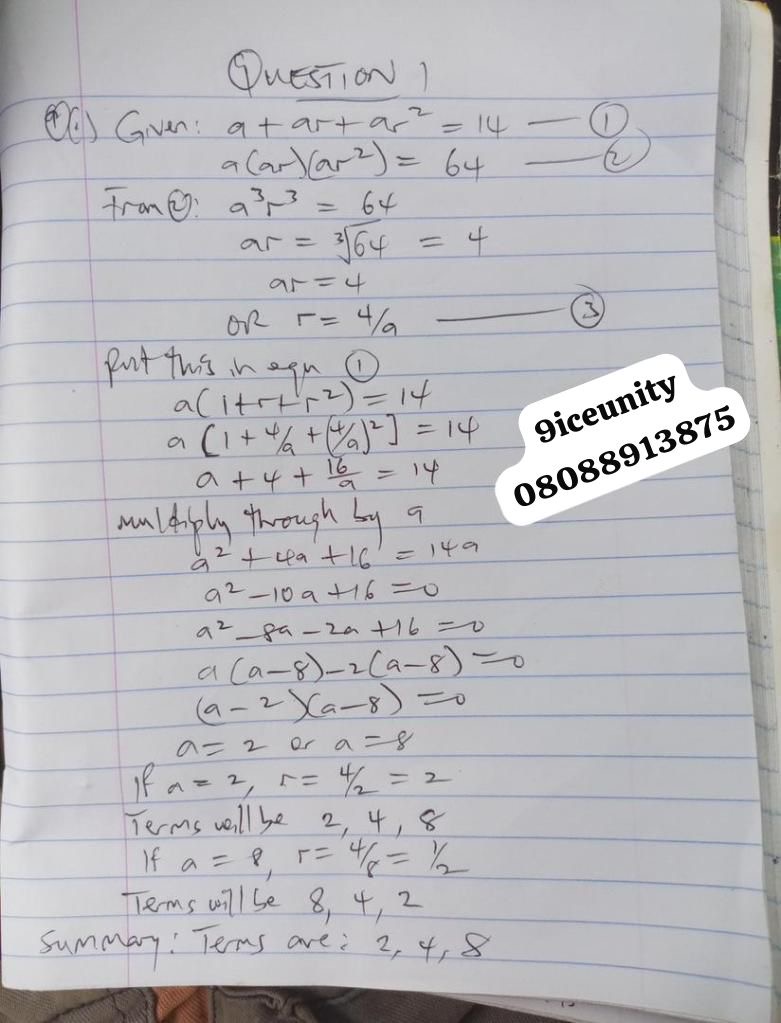 QUESTION 1
(i) Given: a + ar + ar² = 14 — ①
a(ar)(ar²) = 64 — ②
From ②: a³r³ = 64
ar = ³√64 = 4
ar = 4
OR r = 4/a — ③
Put this in eqn ①
a(1+r+r²) = 14
a[1 + 4/a + (4/a)²] = 14
a + 4 + 16/a = 14
Multiply through by a
a² + 4a + 16 = 14a
a² - 10a + 16 = 0
a² - 8a - 2a + 16 = 0
a(a-8) - 2(a-8) = 0
(a-2)(a-8) = 0
a = 2 or a = 8
If a = 2, r = 4/2 = 2
Terms will be 2, 4, 8
If a = 8, r = 4/8 = 1/2
Terms will be 8, 4, 2
Summary: Terms are: 2, 4, 8
9iceunity
08088913875